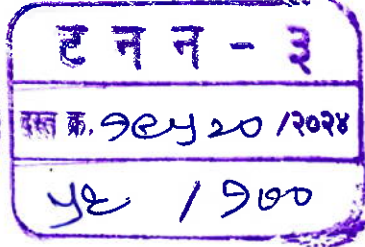 ट न न - ३
दस्त क्र. १९५२० /२०२४
५६ / १००